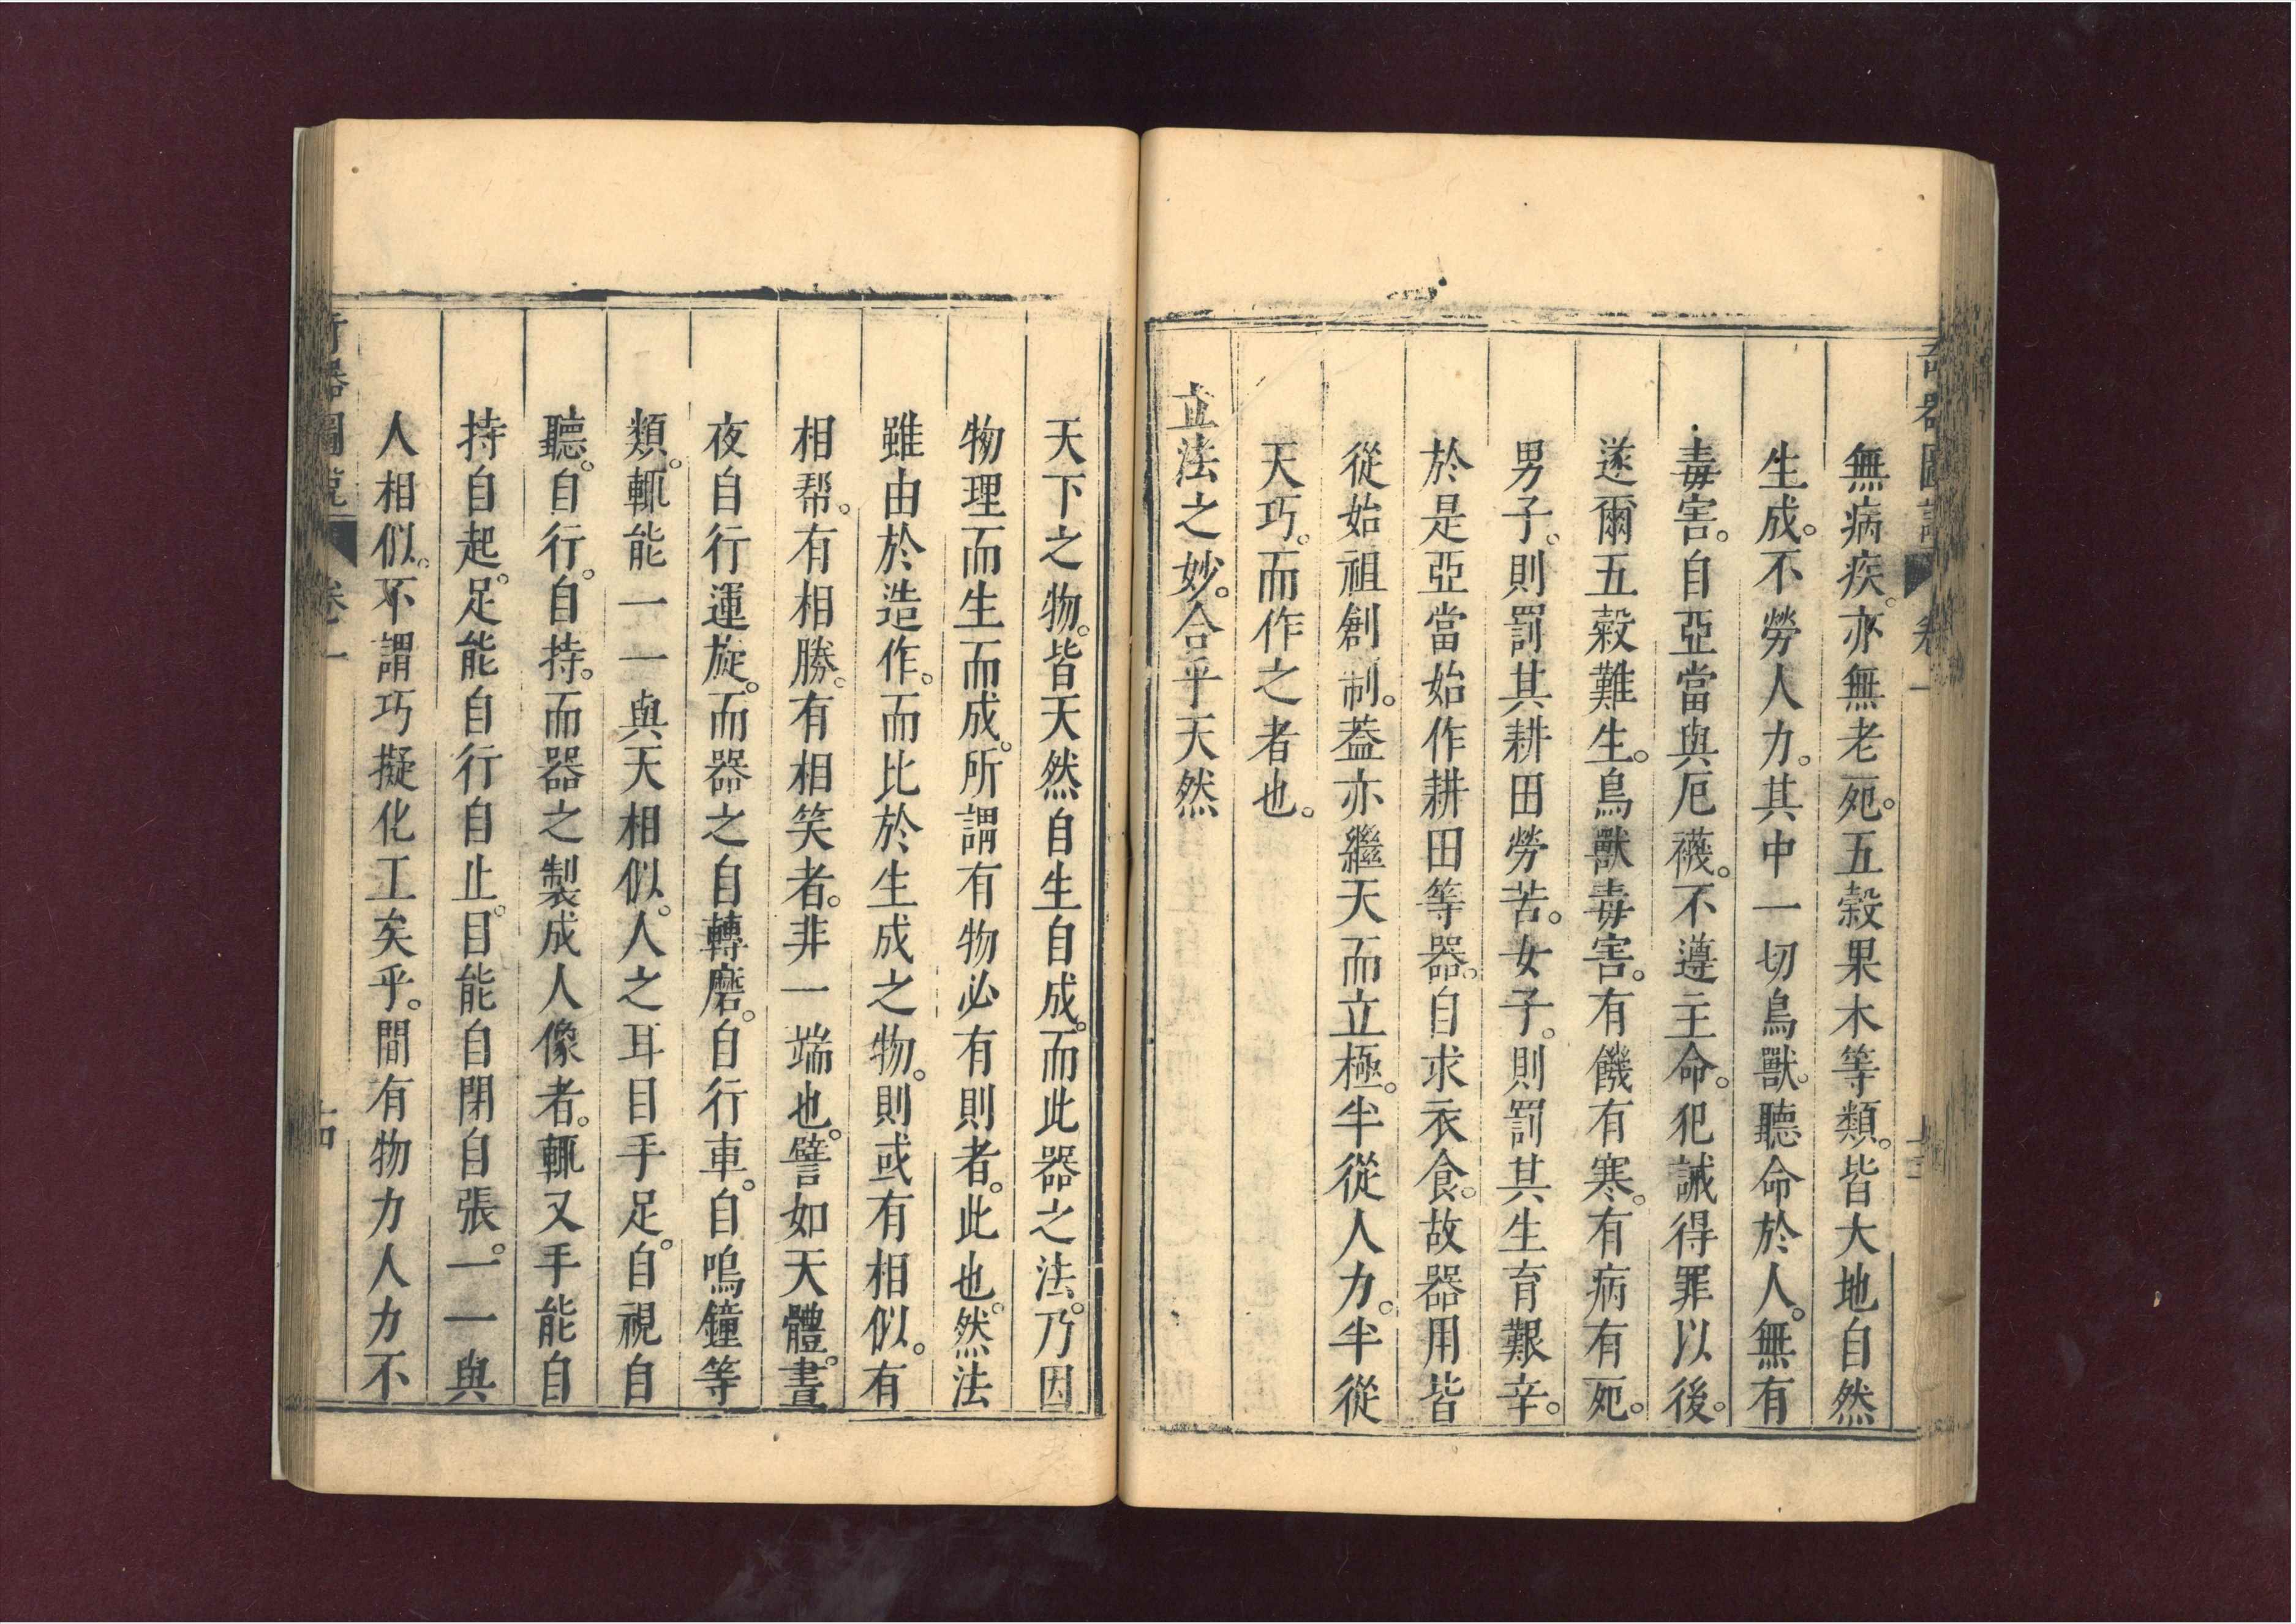 奇器圖說 卷一 十三
無病疾。亦無老死。五穀果木等類。皆大地自然
生成。不勞人力。其中一切鳥獸。聽命於人。無有
毒害。自亞當與厄襪。不遵主命。犯誡得罪以後。
遂爾五穀難生。鳥獸毒害。有饑有寒。有病有死。
男子。則罰其耕田勞苦。女子。則罰其生育艱辛。
於是亞當始作耕田等器。自求衣食。故器用皆
從始祖創制。葢亦繼天而立極。半從人力。半從
天巧。而作之者也。
立法之妙。合乎天然
天下之物。皆天然自生自成。而此器之法。乃因
物理而生而成。所謂有物必有則者。此也。然法
雖由於造作。而比於生成之物。則或有相似。有
相帮。有相勝。有相笑者。非一端也。譬如天體。晝
夜自行運旋。而器之自轉磨。自行車。自鳴鐘等
類。輒能一一與天相似。人之耳目手足。自視自
聽。自行。自持。而器之製成人像者。輒又手能自
持自起。足能自行自止。目能自閉自張。一一與
人相似。不謂巧擬化工矣乎。間有物力人力不
奇器圖說 卷一 十四